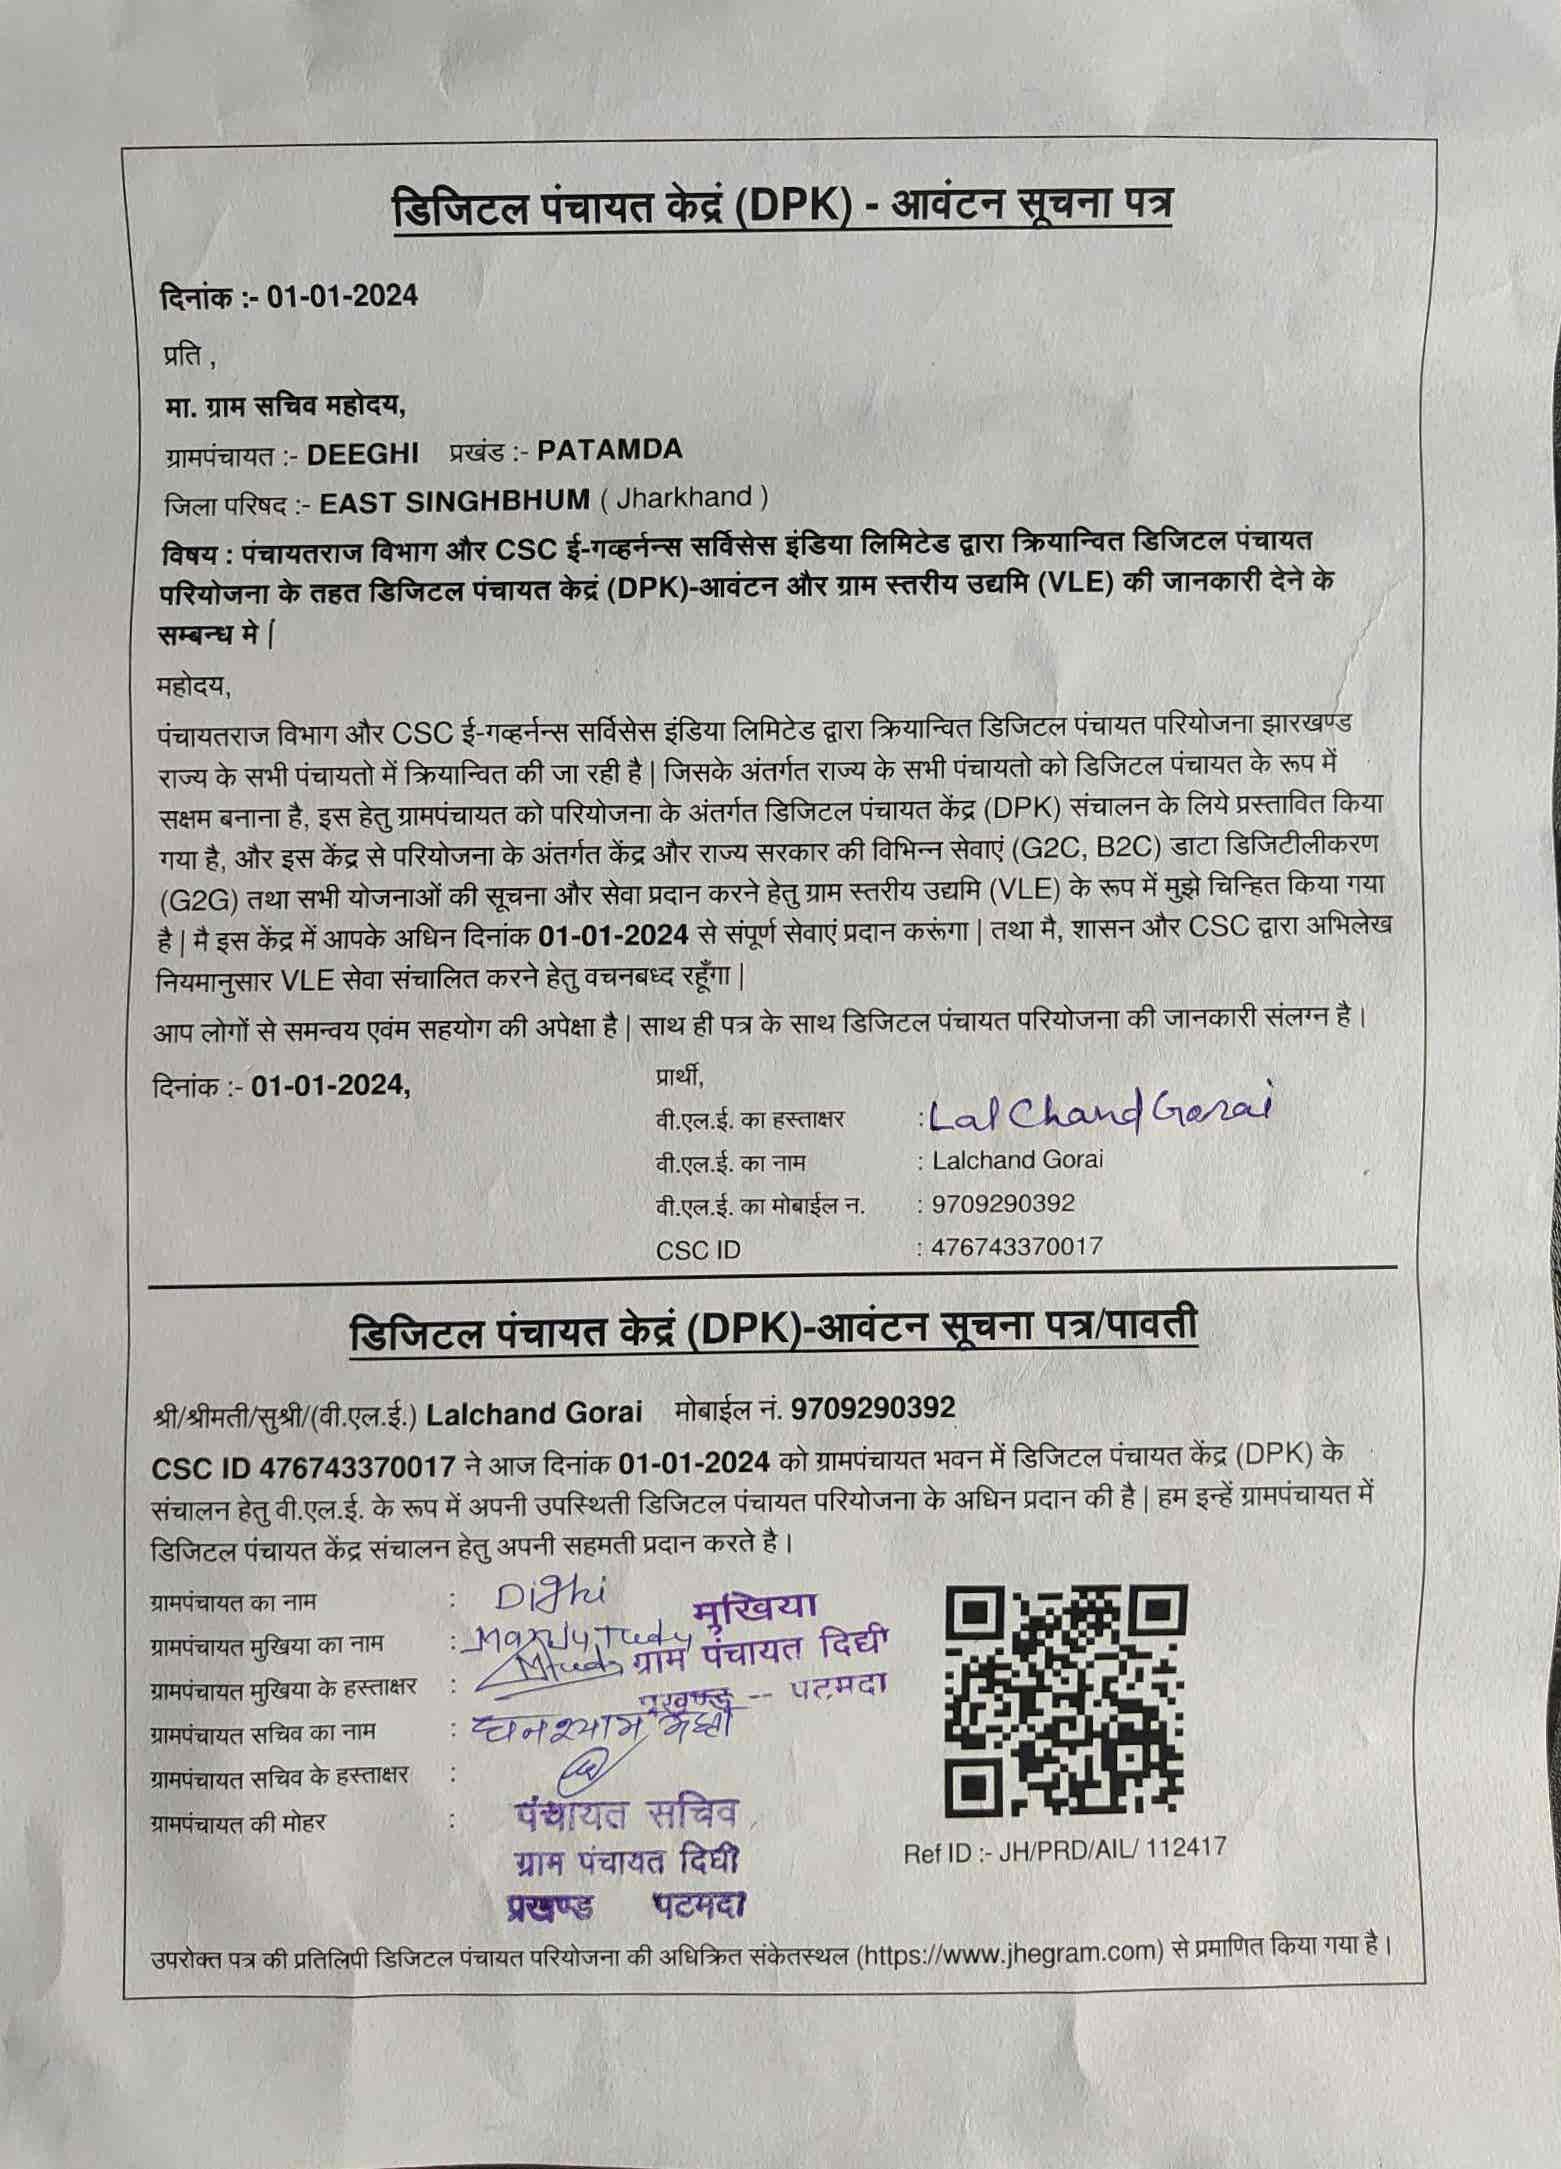 डिजिटल पंचायत केद्रं (DPK) - आवंटन सूचना पत्र
दिनांक :- 01-01-2024
प्रति ,
मा. ग्राम सचिव महोदय,
ग्रामपंचायत :- DEEGHI प्रखंड :- PATAMDA
जिला परिषद :- EAST SINGHBHUM ( Jharkhand )
विषय : पंचायतराज विभाग और CSC ई-गव्हर्नन्स सर्विसेस इंडिया लिमिटेड द्वारा क्रियान्वित डिजिटल पंचायत
परियोजना के तहत डिजिटल पंचायत केद्रं (DPK)-आवंटन और ग्राम स्तरीय उद्यमि (VLE) की जानकारी देने के
सम्बन्ध मे |
महोदय,
पंचायतराज विभाग और CSC ई-गव्हर्नन्स सर्विसेस इंडिया लिमिटेड द्वारा क्रियान्वित डिजिटल पंचायत परियोजना झारखण्ड
राज्य के सभी पंचायतो में क्रियान्वित की जा रही है | जिसके अंतर्गत राज्य के सभी पंचायतो को डिजिटल पंचायत के रूप में
सक्षम बनाना है, इस हेतु ग्रामपंचायत को परियोजना के अंतर्गत डिजिटल पंचायत केंद्र (DPK) संचालन के लिये प्रस्तावित किया
गया है, और इस केंद्र से परियोजना के अंतर्गत केंद्र और राज्य सरकार की विभिन्न सेवाएं (G2C, B2C) डाटा डिजिटीलीकरण
(G2G) तथा सभी योजनाओं की सूचना और सेवा प्रदान करने हेतु ग्राम स्तरीय उद्यमि (VLE) के रूप में मुझे चिन्हित किया गया
है | मै इस केंद्र में आपके अधिन दिनांक 01-01-2024 से संपूर्ण सेवाएं प्रदान करूंगा | तथा मै, शासन और CSC द्वारा अभिलेख
नियमानुसार VLE सेवा संचालित करने हेतु वचनबध्द रहूँगा |
आप लोगों से समन्वय एवंम सहयोग की अपेक्षा है | साथ ही पत्र के साथ डिजिटल पंचायत परियोजना की जानकारी संलग्न है |
दिनांक :- 01-01-2024,
प्रार्थी,
वी.एल.ई. का हस्ताक्षर : Lal Chand Gorai
वी.एल.ई. का नाम : Lalchand Gorai
वी.एल.ई. का मोबाईल न. : 9709290392
CSC ID : 476743370017
डिजिटल पंचायत केद्रं (DPK)-आवंटन सूचना पत्र/पावती
श्री/श्रीमती/सुश्री/(वी.एल.ई.) Lalchand Gorai मोबाईल नं. 9709290392
CSC ID 476743370017 ने आज दिनांक 01-01-2024 को ग्रामपंचायत भवन में डिजिटल पंचायत केंद्र (DPK) के
संचालन हेतु वी.एल.ई. के रूप में अपनी उपस्थिती डिजिटल पंचायत परियोजना के अधिन प्रदान की है | हम इन्हें ग्रामपंचायत में
डिजिटल पंचायत केंद्र संचालन हेतु अपनी सहमती प्रदान करते है |
ग्रामपंचायत का नाम : Dighi
मुखिया
ग्रामपंचायत मुखिया का नाम :
ग्राम पंचायत दिघी
ग्रामपंचायत मुखिया के हस्ताक्षर :
प्रखण्ड -- पटमदा
ग्रामपंचायत सचिव का नाम : घनश्याम
ग्रामपंचायत सचिव के हस्ताक्षर :
ग्रामपंचायत की मोहर :
पंचायत सचिव
ग्राम पंचायत दिघी
प्रखण्ड पटमदा
Ref ID :- JH/PRD/AIL/ 112417
उपरोक्त पत्र की प्रतिलिपी डिजिटल पंचायत परियोजना की अधिक्रित संकेतस्थल (https://www.jhegram.com) से प्रमाणित किया गया है |